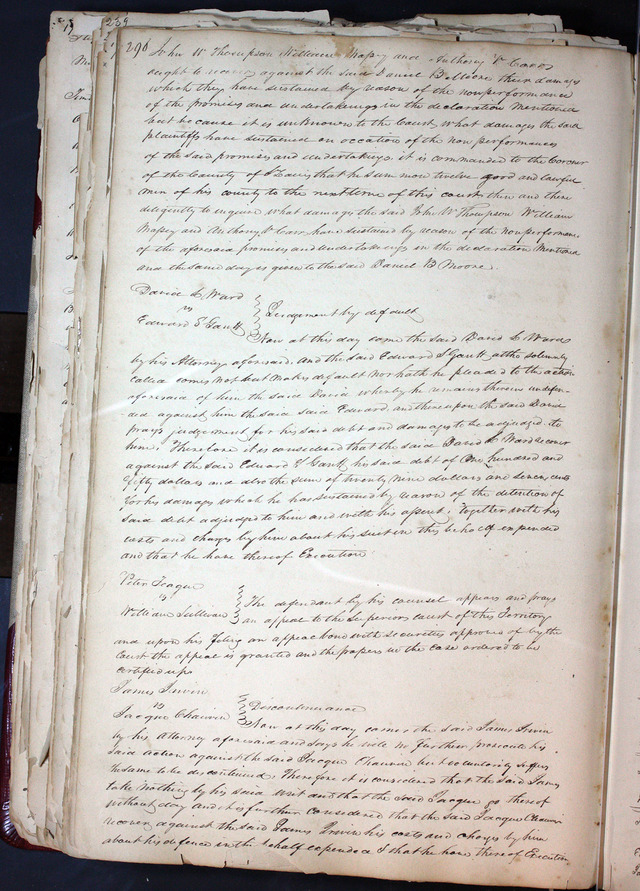 239
290
John W Thompson William Massey and Anthony V Carr
ought to recover against the said Daniel B Moore their damages
which they have sustained by reason of the nonperformance
of the promises and undertakings in the declaration mentioned
but because it is unknown to the Court what damages the said
plaintiffs have sustained on occation of the non performances
of the said promises and undertakings it is commanded to the Coroner
of the County of St Louis that he summon twelve good and lawful
men of his county to the next term of this court then and there
diligently to enquire what damages the said John W Thompson William
Massey and Anthony V Carr have sustained by reason of the non performance
of the aforesaid promises and undertakings in the declaration Mentioned
and the same day is given to the said Daniel B Moore.
David L Ward
vs
Edward S Gantt
Judgement by default
Now at this day come the said David L Ward
by his Attorney aforesaid. and the said Edward S Gantt altho solemnly
called comes not but makes default nor hath he pleaded to the action
aforesaid of him the said David whereby he remains therein undefen-
ded against him the said said Edward, and thereupon the said David
prays judgement for his said debt and damages to be adjudged to
him. Therefore it is considered that the said David L Ward recover
against the said Edward S Gantt his said debt of One hundred and
fifty dollars and also the sum of twenty nine dollars and seven cents
for his damages which he has sustained by reason of the detention of
said debt adjudged to him and with his assent. together with his
costs and charges by him about his suit in this behalf expended
and that he have thereof Execution
Peter Teague
vs
William Sullivan
The defendant by his counsel appears and prays
an appeal to the Superior court of this Territory
and upon his filing an appeal bond with securities approved of by the
Court the appeal is granted and the papers in the case ordered to be
certified up.
James Irwin
vs
Jacque Chauvin
Discontinuance
Now at this day comes the said James Irwin
by his Attorney aforesaid and says he will no further prosecute his
said action against the said Jacque Chauvin but voluntarily suffers
the same to be discontinued. Therefore it is considered that the said James
take nothing by his said writ and that the said Jacque go thereof
without day and it is further considered that the said Jacque Chauvin
recover against the said James Irwin his costs and charges by him
about his defence in this behalf expended & that he have thereof Execution